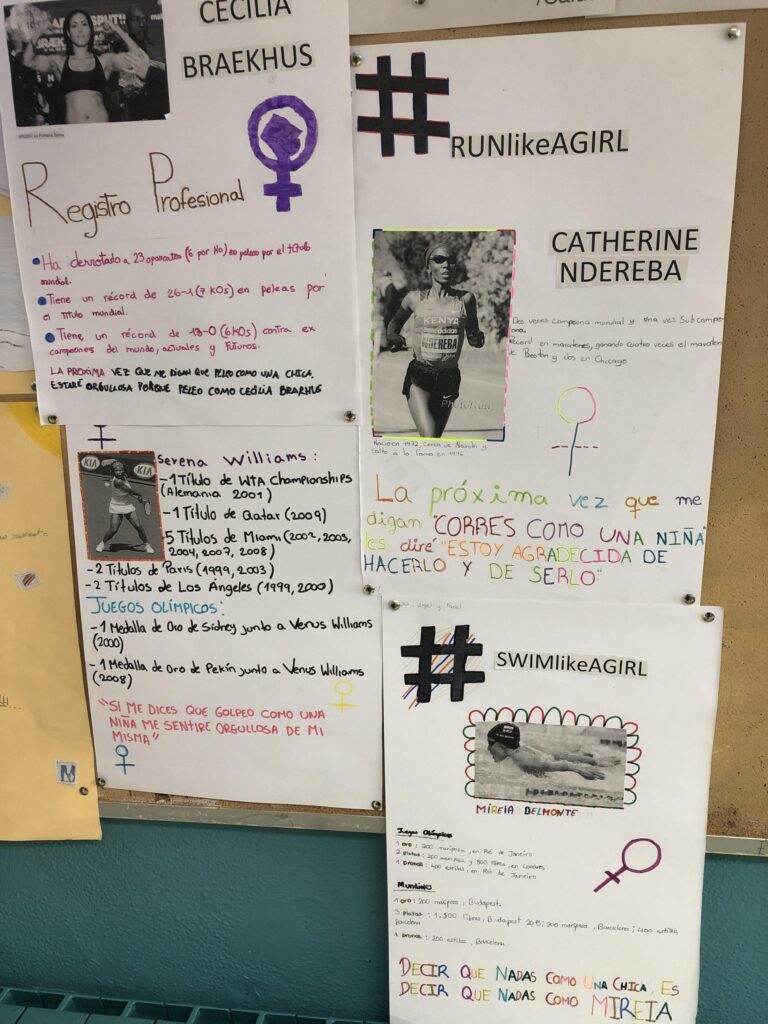 CECILIA
BRAEKHUS
Registro Profesional
Ha derrotado a 23 oponentes (6 por KO) en peleas por el título
mundial.
Tiene un récord de 26-1 (7 KOs) en peleas por
el título mundial.
Tiene un récord de 18-0 (6KOs) contra ex
campeones del mundo, actuales y futuros.
LA PRÓXIMA VEZ QUE ME DIGAN QUE PELEO COMO UNA CHICA,
ESTARÉ ORGULLOSA PORQUE PELEO COMO CECILIA BRAEKHUS
#RUNlikeAGIRL
CATHERINE
NDEREBA
KENYA
NDEREBA
Dos veces campeona mundial y una ves Subcampe-
ona.
Récord en maratones, ganando cuatro veces el maraton
de Boston y dos en Chicago
Nacio en 1972 Cerca de Nairobi y
salto a la fama en
La próxima vez que me
digan "CORRES COMO UNA NIÑA"
les diré "ESTOY AGRADECIDA DE
HACERLO Y DE SERLO"
Serena Williams:
KIA KIA
- 1 Título de WTA Championships
(Alemania 2001)
- 1 Título de Qatar (2009)
- 5 Títulos de Miami (2002, 2003,
2004, 2007, 2008)
- 2 Títulos de París (1999, 2003)
- 2 Títulos de Los Ángeles (1999, 2000)
JUEGOS OLÍMPICOS:
- 1 Medalla de Oro de Sídney junto a Venus Williams
(2000)
- 1 Medalla de Oro de Pekín junto a Venus Williams
(2008)
"SI ME DICES QUE GOLPEO COMO UNA
NIÑA ME SENTIRE ORGULLOSA DE MI
MISMA"
M
#SWIMlikeAGIRL
MIREIA BELMONTE
Juegos Olímpicos
1 oro: 200 mariposa, en Río de Janeiro
2 platas: 200 mariposa y 800 libres, en Londres
1 bronce: 400 estilos, en Río de Janeiro
Mundial
1 oro: 200 mariposa, Budapest.
3 platas: 1.500 libres, Budapest; 200 mariposa, Barcelona; 400 estilos,
Barcelona
1 bronce: 200 estilos, Barcelona.
DECIR QUE NADAS COMO UNA CHICA, ES
DECIR QUE NADAS COMO MIREIA